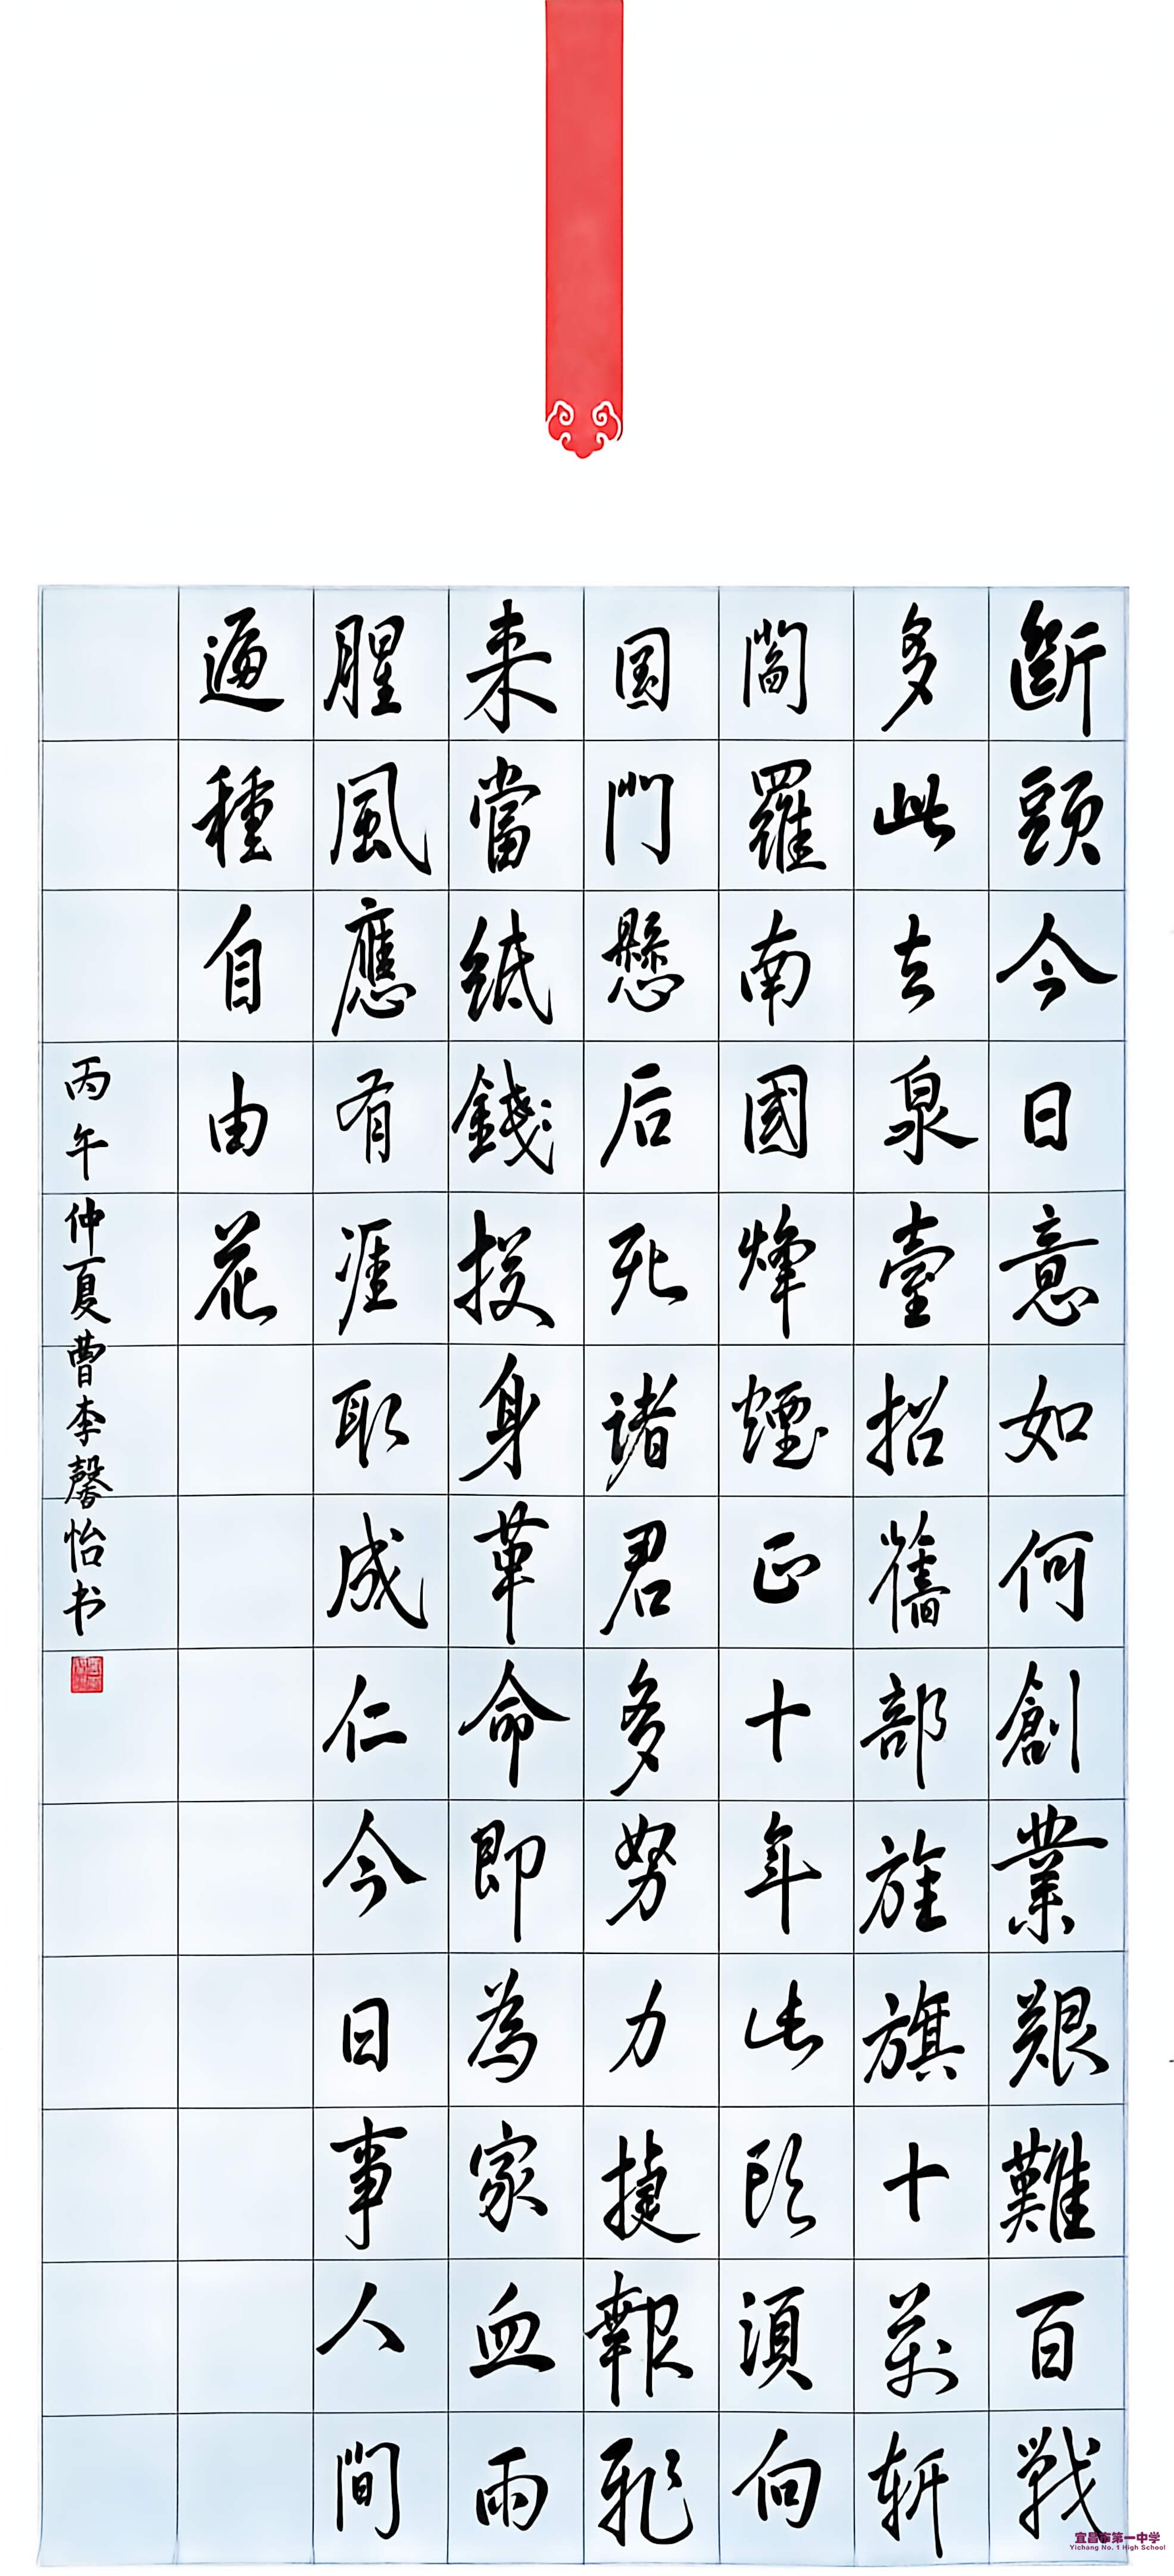 斷頭今日意如何創業艱難百戰
多此去泉臺招舊部旌旗十萬斬
閻羅南國烽煙正十年此頭須向
国門懸后死諸君多努力捷報飛
来當紙錢投身革命即為家血雨
腥風應有涯取成仁今日事人間
遍種自由花
丙午仲夏曹李馨怡书
宜昌市第一中学
Yichang No. 1 High School